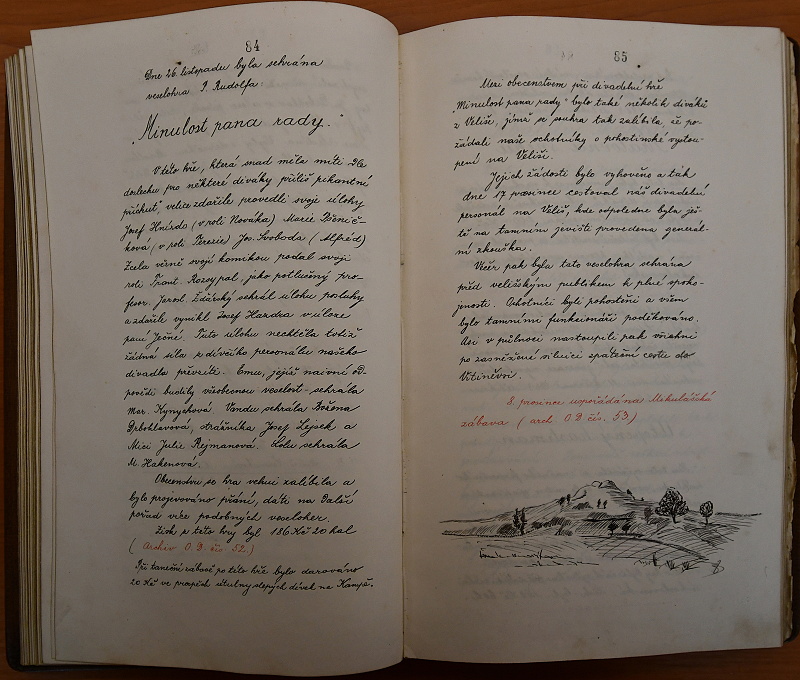 84
Dne 26. listopadu byla sehrána
veselohra J. Rudolfa:
"Minulost pana rady."
V této hře, která snad měla míti dle
doslechu pro některé diváky příliš pikantní
příchuť, velice zdařile provedli svoje úlohy
Josef Hnízdo (v roli Nováka) Marie
ková (v roli Terezie) Jos. Svoboda (Alfréd)
Zcela věrně svojí komikou podal svoji
roli Frant. Rozsypal, jako potlučený pro-
fesor. Jarosl. Žďárský sehrál úlohu posluhy
a zdařile vynikl Josef Hazdra v úloze
paní Ječné. Tuto úlohu nechtěla totiž
žádná síla z dívčího personálu našeho
divadla převzíti. Emu, jejíž naivní od-
povědi budily všeobecnou veselost - sehrála
Mar. Kynychová. Vandu sehrála Božena
Drbohlavová, strážníka Josef Lejsek a
Mici Julie Rejmanová. Lolu sehrála
M. Hakenová.
Obecenstvu se hra velmi zalíbila a
bylo projevováno přání, dáti na další
pořad více podobných veseloher.
Zisk z této hry byl 186 Kč 20 hal
(Archiv O. D. čís 52.)
Při taneční zábavě po této hře bylo darováno
20 Kč ve prospěch útulny slepých dívek na Kampě.
85
Mezi obecenstvem při divadelní hře
"Minulost pana rady" bylo také několik diváků
z Veliše, jimž se souhra tak zalíbila, že po-
žádali naše ochotníky o pohostinské vystou-
pení na Veliši.
Jejich žádosti bylo vyhověno a tak
dne 17 prosince cestoval náš divadelní
personál na Veliš, kde odpoledne byla ješ-
tě na tamním jevišti provedena generál-
ní zkouška.
Večer pak byla tato veselohra sehrána
před velišským publikem k plné spoko-
jenosti. Ochotníci byli pohostěni a všem
bylo tamními funkcionáři poděkováno.
Asi v půlnoci nastoupili pak všichni
po zasněžené silnici zpáteční cestu do
Vitiněvsi.
8. prosince uspořádána Mikulášská
zábava (arch O. D. čís. 53.)